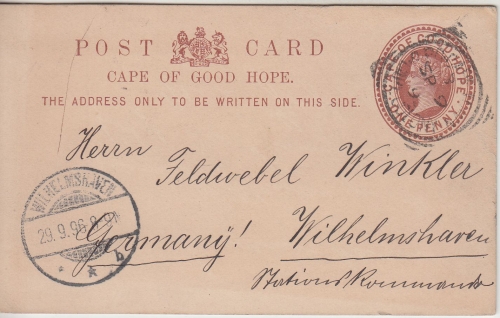 POST CARD
CAPE OF GOOD HOPE.
THE ADDRESS ONLY TO BE WRITTEN ON THIS SIDE.
CAPE OF GOOD HOPE
ONE PENNY
Herrn
Feldwebel Winkler
WILHELMSHAVEN
29.9.96
b
Germany! Wilhelmshaven
Stations Kommando